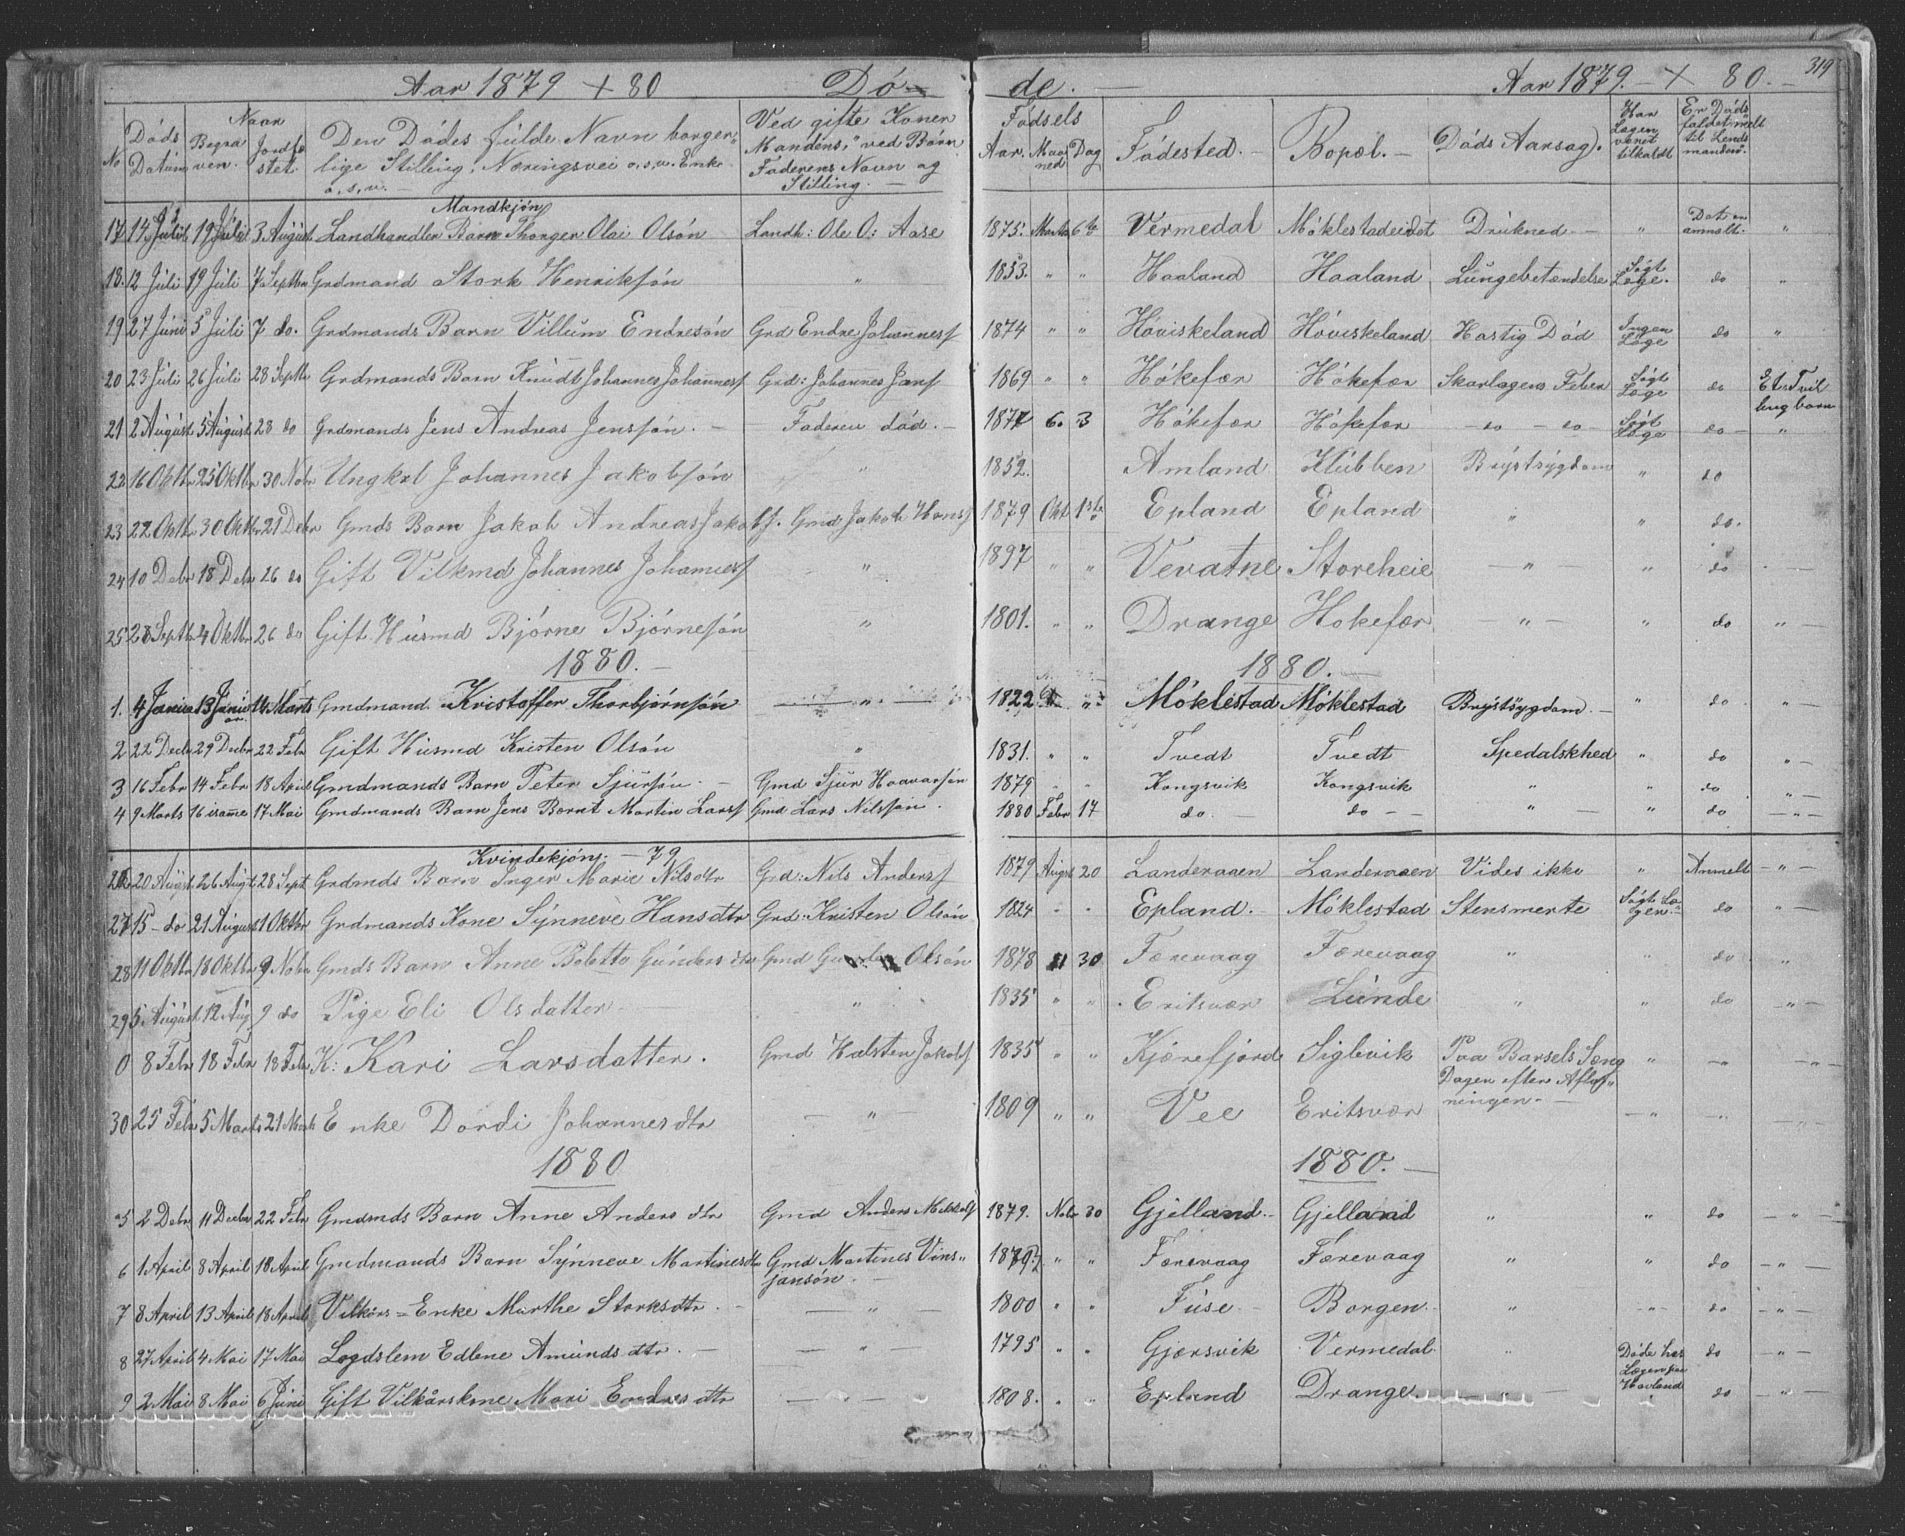 Aar 1879 + 80 Dö- de. Aar 1879. + 80. 319
No Döds Datum Naar Begra ven. Jordfæ stet. Den Dödes fulde Navn borger- lige Stilling, Næringsvei o.s.v. Enke o.s.v. Ved gifte Koner Mandens, ved Börn Faderens Navn og Stilling. Födsels Aar. Maaned Dag Födested. Bopæl. Döds Aarsag. Har Lægen været tilkaldt Er Döds faldet meldt til Lens manden.
Mandkjön
17 14 Juli 19 Juli 3 August Landhandler Barn Thonger Olai Olsön Landh: Ole O: Aase 1875. Marts 6te Vermedal Möklestadeidet Drukned - " Dat en anmelt. "
18. 12 Juli 19 Juli 7 Septbr Grdmand Stork Henriksön " 1853. " " Haaland Haaland Lungebetændelse Sögt Læge. do "
19 27 Juni 5 Juli 7 do. Grdmands Barn Villum Endresön Grd Endre Johannesf 1874 " " Höviskeland Höviskeland Hastig Död Ingen Læge do "
20 23 Juli 26 Juli 28 Septbr Grdmands Barn Knudt Johannes Johannesf Grd: Johannes Jansf 1869 " " Hökefær Hökefær Skarlagens Feber Sögt Læge do Et Tvil lingbarn
21 2 August 5 August 28 do Grdmands Jens Andreas Jensön. - Faderen död. - 1877 6. 3 Hökefær Hökefær - do - do - Sögt Læge do - "
22 16 Oktbr 25 Oktbr 30 Nobr Ungkal Johannes Jakobsön " 1852. Amland Klübben Brÿstsÿgdom " do
23 22 Oktbr 30 Oktbr 21 Debr Gmds Barn Jakob Andreas Jakobsf. Gmd Jakob Hansf 1879 Okt 1ste Epland Epland " " do.
24 10 Debr 18 Debr 26 do Gift Vilkmd Johannes Johannesf " 1897 " " Vevatne Storeheie - " - " do
25 28 Septbr 4 Oktbr 26 do Gift Husmd Björne Björnesön " 1801. " " Drange Hokefær - " - " do " -
1880. - 1880. -
1. 4 Janua 13 Janu ar 14 Marts Gmdmand Kristoffer Thorbjörnsön - " - 1822 " Möklestad Möklestad Brÿstsÿgdom. - " do " -
2 22 Decbr 29 Decbr 22 Febr Gift Husmd Kristen Olsön " 1831. " " Tvedt Tvedt Spedalskhed " do " -
3 16 Febr 14 Febr 18 April Gmdmands Barn Peter Sjursön. - Gmd Sjur Haavarsön 1879 " " Kongsvik Kongsvik " " do " -
4 9 Marts 16 samme 17 Mai Gmdmands Barn Jens Bernt Martin Larsf Gmd Lars Nilssön. 1880 Febr 17 do. - do - - " - " do - " -
Kvindekjön. - 79
26 20 August 26 Augt 28 Sept Grdmds Barn Inger Marie Nilsdtr Grd: Nils Andersf 1879 Augst 20 Landervaaen Landervaaen Vides ikke " Anmelt - " -
27 15 - do 21 August 1 Oktbr Grdmands Kone Sÿnneve Hansdtr Grd: Kristen Olsön 1824 " " Epland. - Möklestad Stensmerte Sögt Læ gen. - do - " -
28 11 Oktbr 18 Oktbr 9 Nobr Gmds Barn Anne Bolette Gunders dtr Gmd Olsön 1878 11 30 Færevaag Færevaag " do - " -
29 5 August 12 Aug 9 do Pige Eli Olsdatter " 1835 " " Eritsvær Lunde " " do - " -
0 8 Febr 18 Febr 18 Febr K: Kari Larsdatter. Gmd Halsten Jakobsf 1835 " " Kjærefjord Siglevik Paa Barsels Seng " - " - " -
Dagen efter Aflöf-
ningen. -
30 25 Febr 5 Marts 21 Marts Enke Dordi Johannesdtr - " 1809 " " Vee Eritsvær - " - " -
1880 1880. -
5 2 Debr 11 Decbr 22 Febr Gmdmds Barn Anne Anders dtr Gmd Anders Mikkelsf 1879. Nobr 30 Gjelland. - Gjelland " " do - " -
6 1 April 8 April 18 April Gmdmands Barn Sÿnneve Martinesdtr Gmd Martines Vins- jansön. - 1879 " " Færevaag Færevaag " " do - " -
7 8 April 13 April 18 April Vilkårs = Enke Marthe Storksdtr. - - " 1800 " " Fuse - Borgen. " - " - do - " -
8 27 April 4 Mai 17 Mai Legdslem Edlene Amunds dtr. - - " 1795 " " Gjærsvik Vermedal. " Döde hos Lægen paa Havland do - " -
9 2 Mai 8 Mai 6 Juni Gift Vilkårskone Mari Endres dtr - " - 1808. " " Epland Drange. - " - do - " -